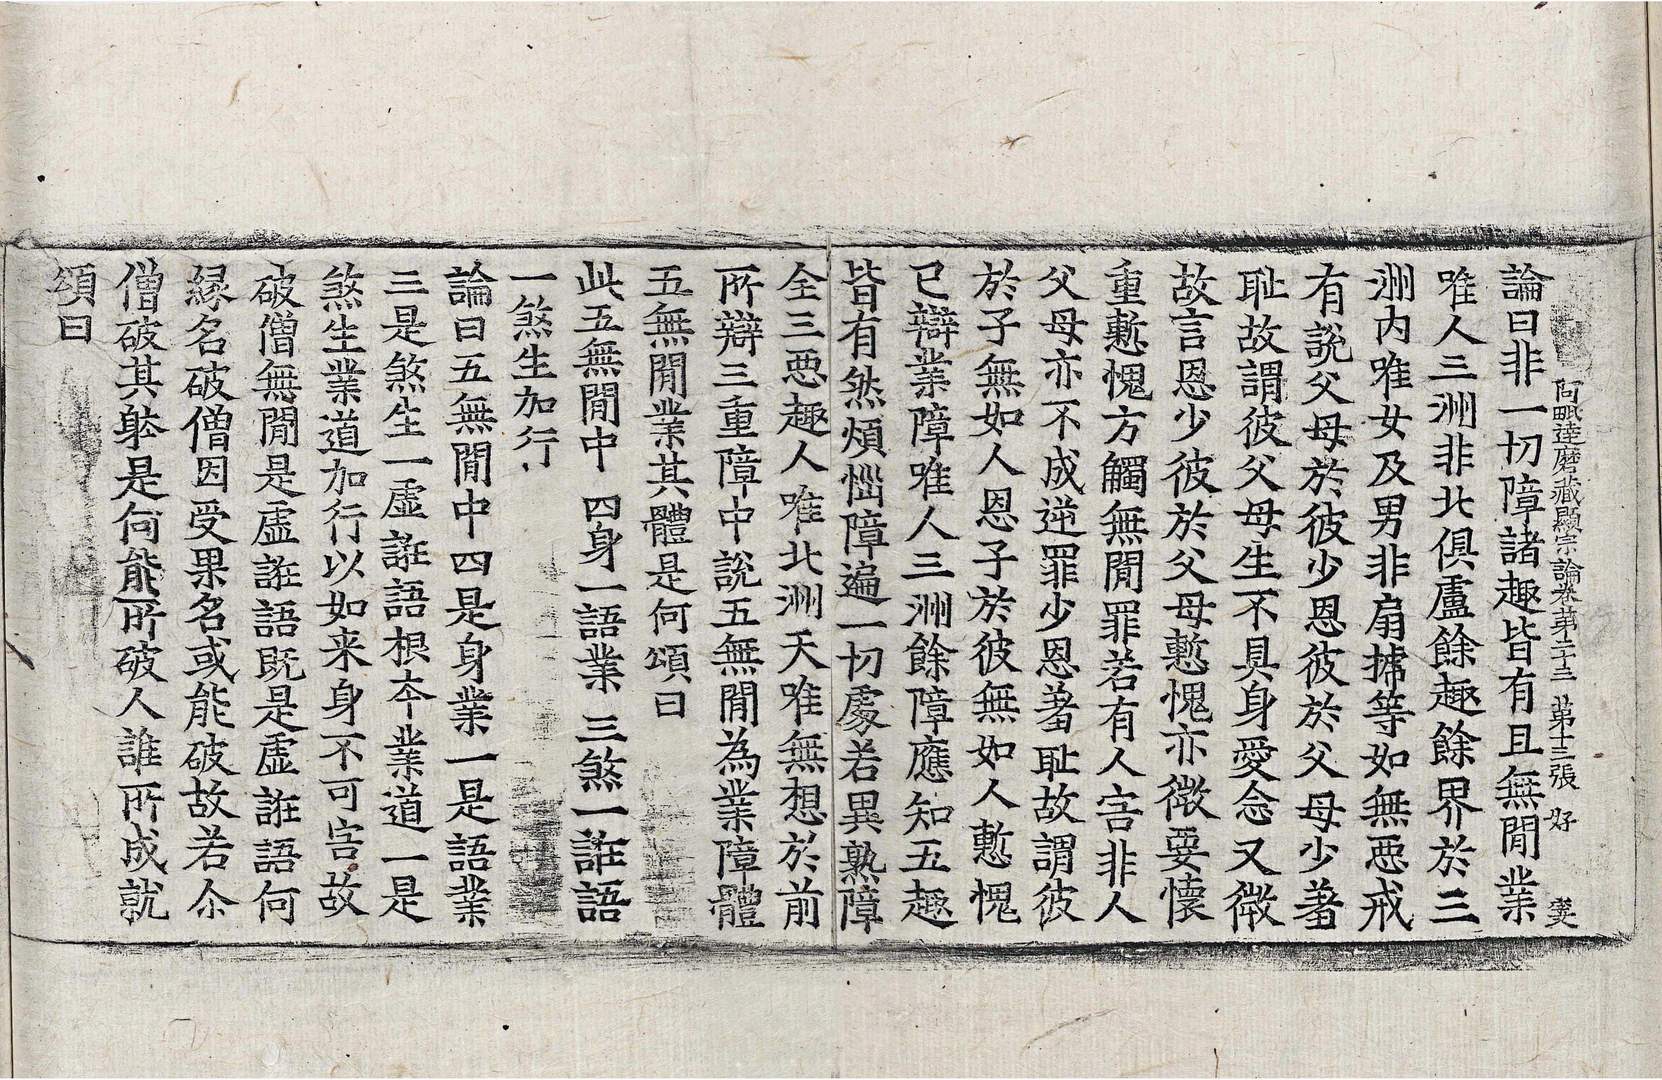 阿毗達磨藏顯宗論卷第二十三 第十三張 好
論曰非一切障諸趣皆有且無閒業
唯人三洲非北俱盧餘趣餘界於三
洲内唯女及男非扇搋等如無惡戒
有說父母於彼少恩彼於父母少著
耻故謂彼父母生不具身愛念又微
故言恩少彼於父母慙愧亦微要懷
重慙愧方觸無閒罪若有人害非人
父母亦不成逆罪少恩著耻故謂彼
於子無如人恩子於彼無如人慙愧
已辯業障唯人三洲餘障應知五趣
皆有然煩惱障遍一切處若異熟障
全三惡趣人唯北洲天唯無想於前
所辯三重障中說五無閒為業障體
五無閒業其體是何頌曰
此五無閒中 四身一語業 三煞一誑語
一煞生加行
論曰五無閒中四是身業一是語業
三是煞生一虛誑語根本業道一是
煞生業道加行以如来身不可害故
破僧無閒是虛誑語既是虛誑語何
緣名破僧因受果名或能破故若尒
僧破其躰是何能所破人誰所成就
頌曰